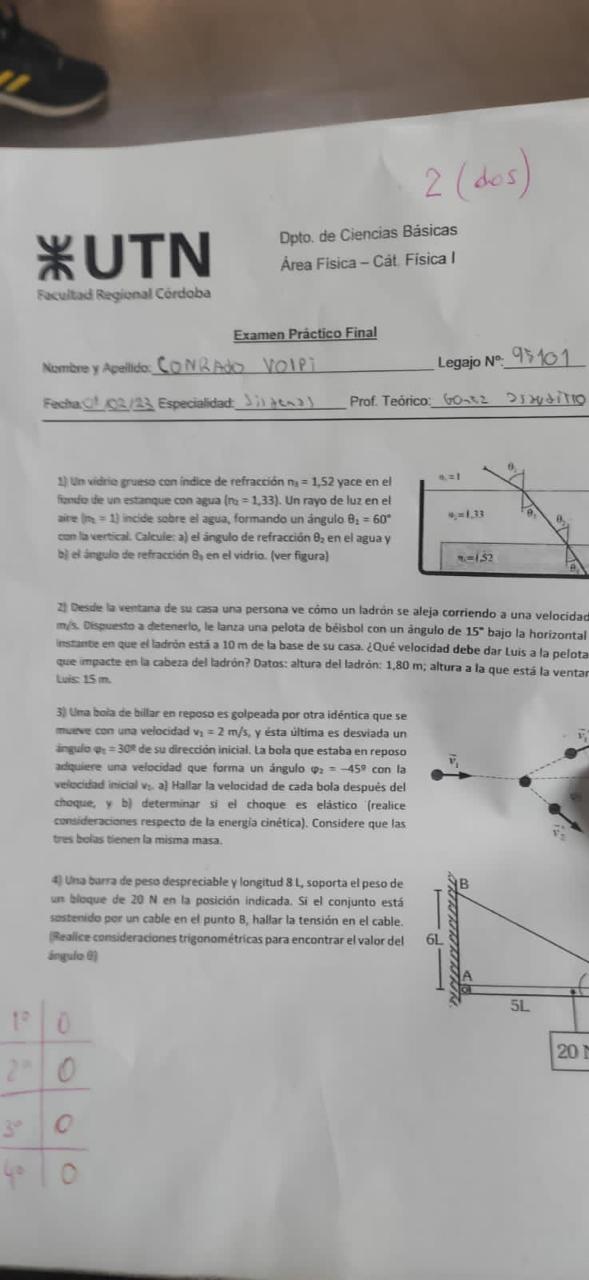 2 (dos)
UTN
Facultad Regional Córdoba
Dpto. de Ciencias Básicas
Área Física – Cát. Física I
Examen Práctico Final
Nombre y Apellido: CONRADO VOLPI Legajo Nº:
Fecha: /02/23 Especialidad: Prof. Teórico:
1) Un vidrio grueso con índice de refracción n₃ = 1,52 yace en el
fondo de un estanque con agua (n₂ = 1,33). Un rayo de luz en el
aire (n₁ = 1) incide sobre el agua, formando un ángulo θ₁ = 60°
con la vertical. Calcule: a) el ángulo de refracción θ₂ en el agua y
b) el ángulo de refracción θ₃ en el vidrio. (ver figura)
n₁=1
θ₁
n₂=1,33
θ₂
θ₂
n₃=1,52
θ₃
2) Desde la ventana de su casa una persona ve cómo un ladrón se aleja corriendo a una velocidad
m/s. Dispuesto a detenerlo, le lanza una pelota de béisbol con un ángulo de 15° bajo la horizontal
instante en que el ladrón está a 10 m de la base de su casa. ¿Qué velocidad debe dar Luis a la pelota
que impacte en la cabeza del ladrón? Datos: altura del ladrón: 1,80 m; altura a la que está la ventan
Luis: 15 m.
3) Una bola de billar en reposo es golpeada por otra idéntica que se
mueve con una velocidad v₁ = 2 m/s, y ésta última es desviada un
ángulo φ₁ = 30º de su dirección inicial. La bola que estaba en reposo
adquiere una velocidad que forma un ángulo φ₂ = –45º con la
velocidad inicial v₁. a) Hallar la velocidad de cada bola después del
choque, y b) determinar si el choque es elástico (realice
consideraciones respecto de la energía cinética). Considere que las
tres bolas tienen la misma masa.
v₁
v₂'
4) Una barra de peso despreciable y longitud 8 L, soporta el peso de
un bloque de 20 N en la posición indicada. Si el conjunto está
sostenido por un cable en el punto B, hallar la tensión en el cable.
(Realice consideraciones trigonométricas para encontrar el valor del
ángulo θ)
B
6L
A
5L
20 N
1º 0
2º 0
3º 0
4º 0